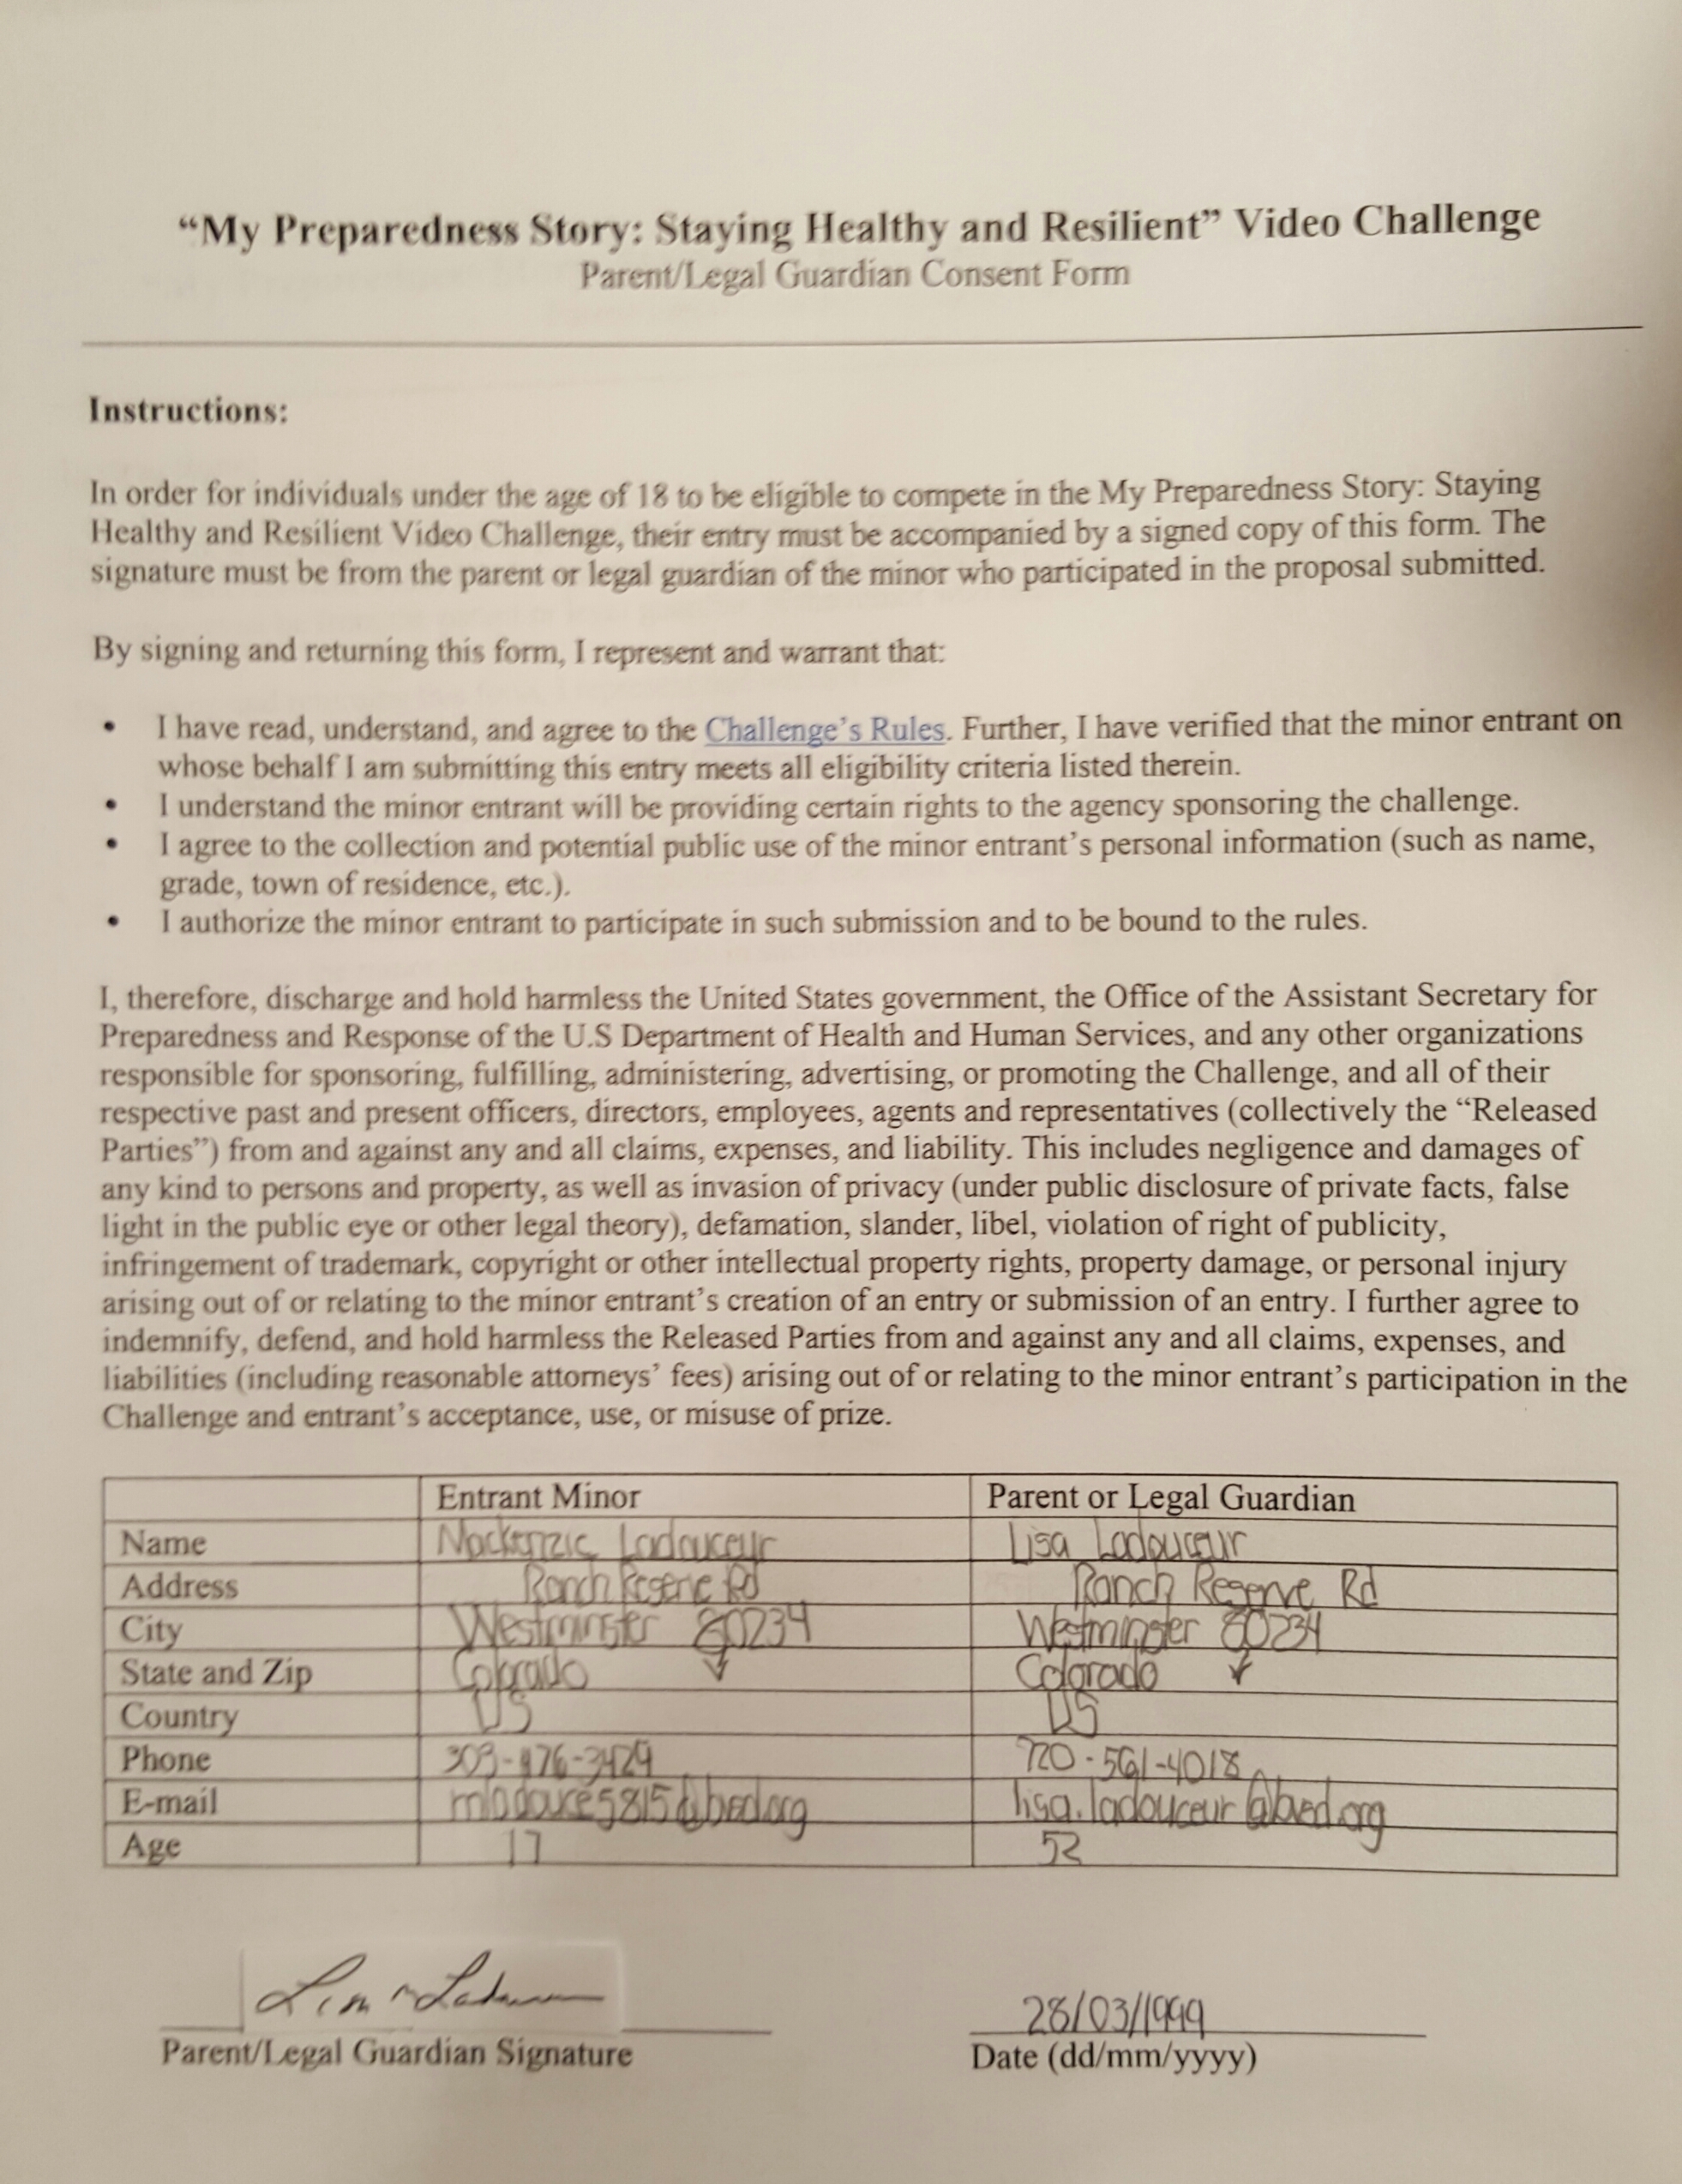 “My Preparedness Story: Staying Healthy and Resilient” Video Challenge
Parent/Legal Guardian Consent Form
Instructions:
In order for individuals under the age of 18 to be eligible to compete in the My Preparedness Story: Staying
Healthy and Resilient Video Challenge, their entry must be accompanied by a signed copy of this form. The
signature must be from the parent or legal guardian of the minor who participated in the proposal submitted.
By signing and returning this form, I represent and warrant that:
• I have read, understand, and agree to the Challenge’s Rules. Further, I have verified that the minor entrant on
whose behalf I am submitting this entry meets all eligibility criteria listed therein.
• I understand the minor entrant will be providing certain rights to the agency sponsoring the challenge.
• I agree to the collection and potential public use of the minor entrant’s personal information (such as name,
grade, town of residence, etc.).
• I authorize the minor entrant to participate in such submission and to be bound to the rules.
I, therefore, discharge and hold harmless the United States government, the Office of the Assistant Secretary for
Preparedness and Response of the U.S Department of Health and Human Services, and any other organizations
responsible for sponsoring, fulfilling, administering, advertising, or promoting the Challenge, and all of their
respective past and present officers, directors, employees, agents and representatives (collectively the “Released
Parties”) from and against any and all claims, expenses, and liability. This includes negligence and damages of
any kind to persons and property, as well as invasion of privacy (under public disclosure of private facts, false
light in the public eye or other legal theory), defamation, slander, libel, violation of right of publicity,
infringement of trademark, copyright or other intellectual property rights, property damage, or personal injury
arising out of or relating to the minor entrant’s creation of an entry or submission of an entry. I further agree to
indemnify, defend, and hold harmless the Released Parties from and against any and all claims, expenses, and
liabilities (including reasonable attorneys’ fees) arising out of or relating to the minor entrant’s participation in the
Challenge and entrant’s acceptance, use, or misuse of prize.
Entrant Minor Parent or Legal Guardian
Name Mackenzie Ladouceur Lisa Ladouceur
Address Ranch Reserve Rd Ranch Reserve Rd
City Westminster 80234 Westminster 80234
State and Zip Colorado Colorado
Country US US
Phone 720-561-4018
E-mail lisa.ladouceur@bvsd.org
Age 17 52
28/03/1999
Parent/Legal Guardian Signature Date (dd/mm/yyyy)